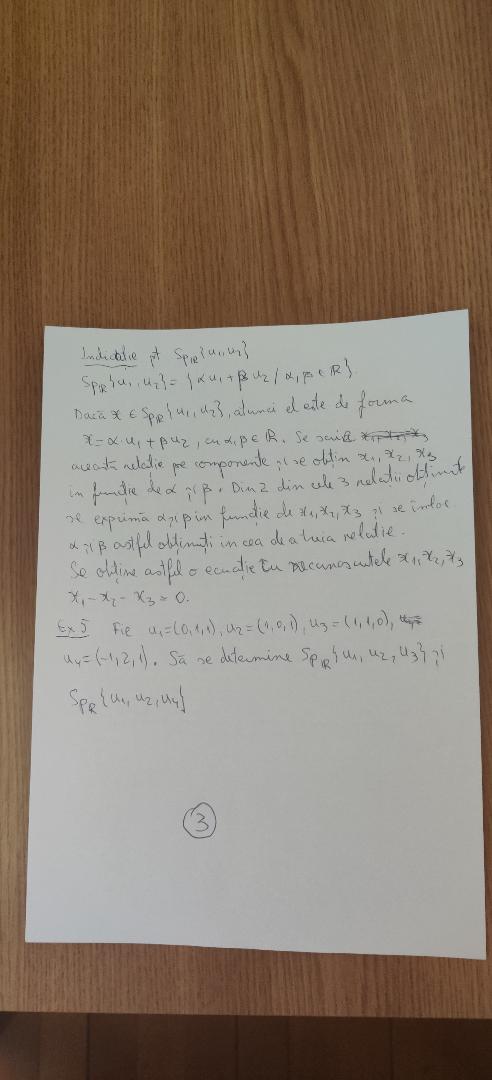 Indicație pt Sp_ℝ{u₁,u₂}
Sp_ℝ{u₁,u₂}={αu₁+βu₂/α,β∈ℝ}.
Dacă x∈Sp_ℝ{u₁,u₂}, atunci el este de forma
x=α·u₁+βu₂, cu α,β∈ℝ. Se scrie
această relație pe componente și se obțin x₁,x₂,x₃
în funcție de α și β. Din 2 din cele 3 relatii obținute
se exprimă α și β în funcție de x₁,x₂,x₃ și se înloc.
α și β astfel obținuți in cea de a treia relatie.
Se obține astfel o ecuație cu necunoscutele x₁,x₂,x₃
x₁-x₂-x₃=0.
Ex 5 Fie u₁=(0,1,1), u₂=(1,0,1), u₃=(1,1,0),
u₄=(-1,2,1). Să se determine Sp_ℝ{u₁,u₂,u₃} și
Sp_ℝ{u₁,u₂,u₄}
3